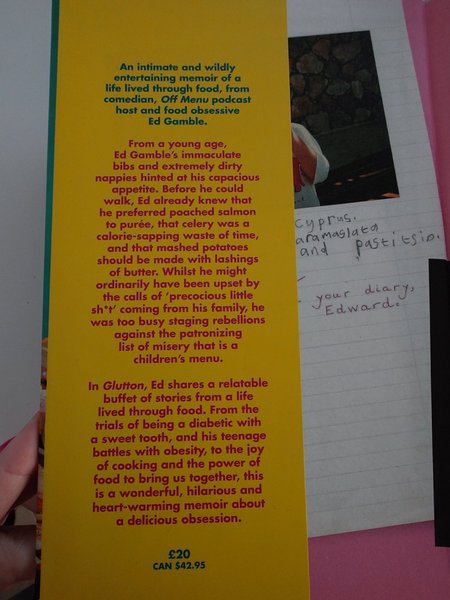 An intimate and wildly
entertaining memoir of a
life lived through food, from
comedian, Off Menu podcast
host and food obsessive
Ed Gamble.
From a young age,
Ed Gamble's immaculate
bibs and extremely dirty
nappies hinted at his capacious
appetite. Before he could
walk, Ed already knew that
he preferred poached salmon
to purée, that celery was a
calorie-sapping waste of time,
and that mashed potatoes
should be made with lashings
of butter. Whilst he might
ordinarily have been upset by
the calls of 'precocious little
sh*t' coming from his family, he
was too busy staging rebellions
against the patronizing
list of misery that is a
children's menu.
In Glutton, Ed shares a relatable
buffet of stories from a life
lived through food. From the
trials of being a diabetic with
a sweet tooth, and his teenage
battles with obesity, to the joy
of cooking and the power of
food to bring us together, this
is a wonderful, hilarious and
heart-warming memoir about
a delicious obsession.
£20
CAN $42.95
Cyprus.
aramaslata
and pastitsio.
your diary,
Edward.